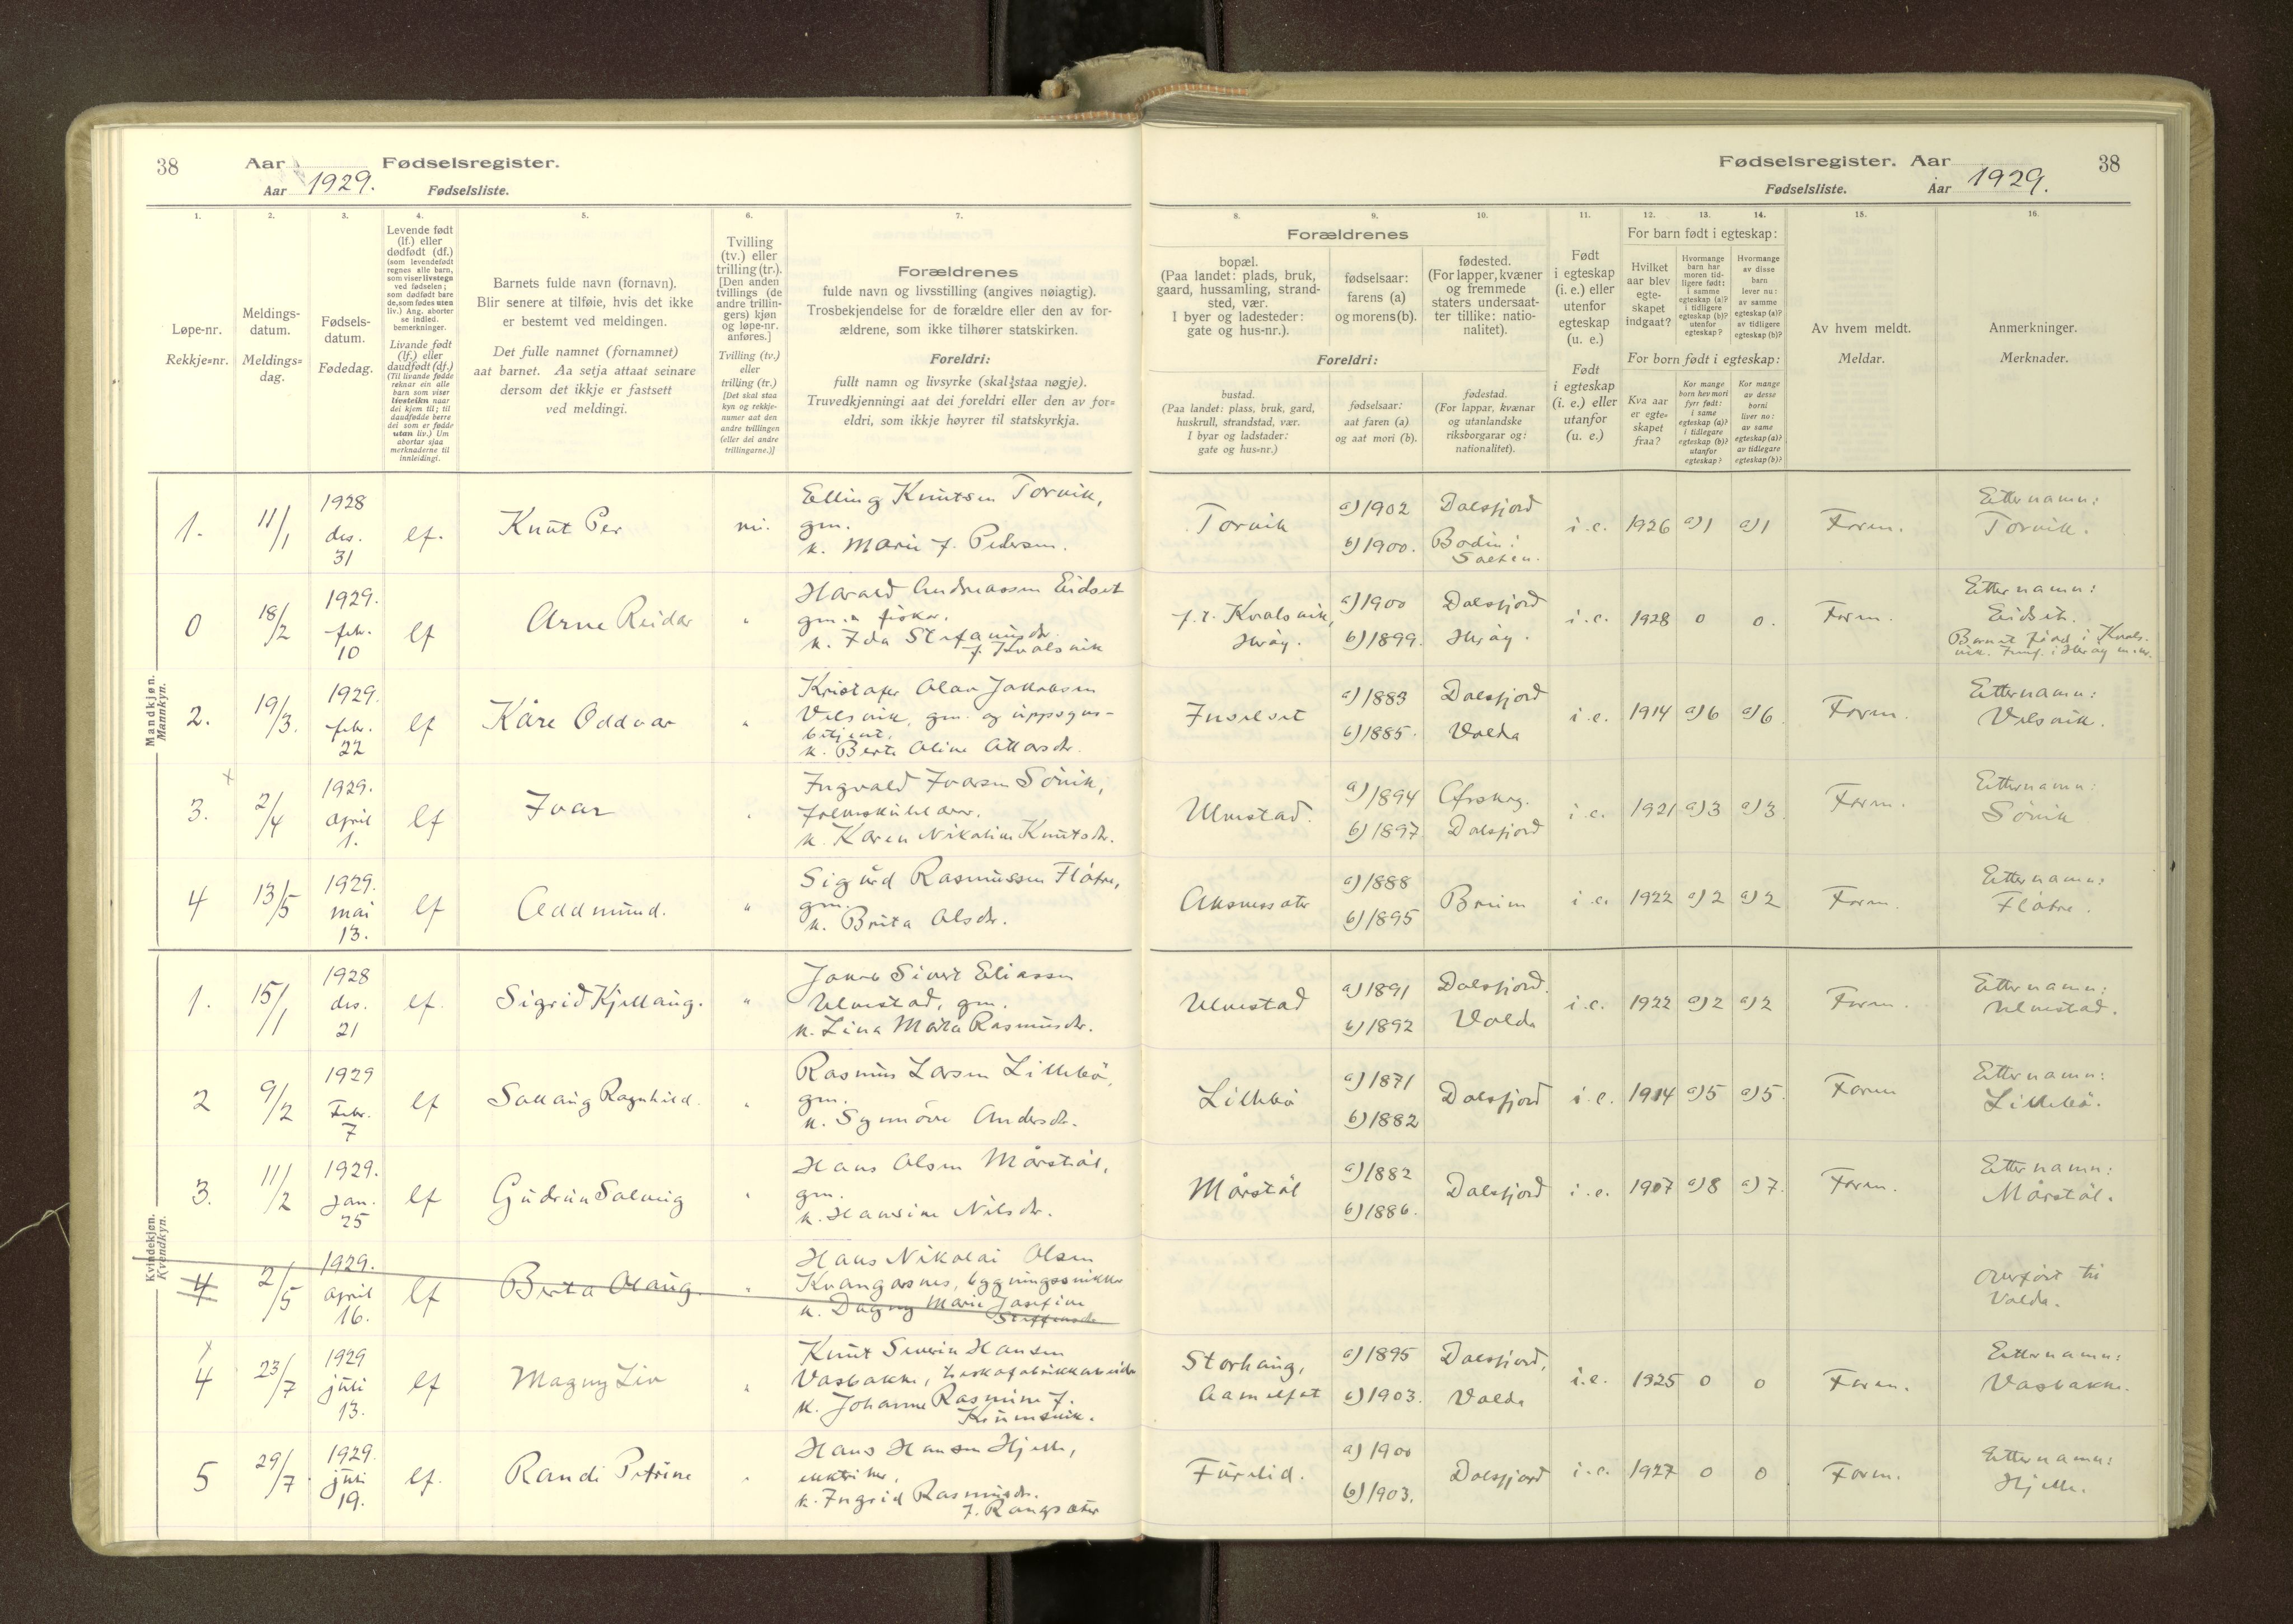 38 Aar Fødselsregister.
Aar 1929. Fødselsliste.
Fødselsregister. Aar 38
Fødselsliste. Aar 1929.
1. 2. 3. 4. 5. 6. 7.
Løpe-nr.
Rekkje-nr.
Meldings-
datum.
Meldings-
dag.
Fødsels-
datum.
Fødedag.
Levende født
(lf.) eller
dødfødt (df.)
(som levendefødt
regnes alle barn,
som viser livstegn
ved fødselen;
som dødfødt bare
de, som fødes uten
liv.) Ang. aborter
se indled.
bemerkninger.
Livande født
(lf.) eller
daudfødt (df.)
(Til livande fødde
reknar ein alle
barn som viser
livsteikn naar
dei kjem til; til
daudfødde berre
dei som er fødde
utan liv.) Um
abortar sjaa
merknaderne til
innleidingi.
Barnets fulde navn (fornavn).
Blir senere at tilføie, hvis det ikke
er bestemt ved meldingen.
Det fulle namnet (fornamnet)
aat barnet. Aa setja attaat seinare
dersom det ikkje er fastsett
ved meldingi.
Tvilling
(tv.) eller
trilling (tr.).
[Den anden
tvillings (de
andre trillin-
gers) kjøn
og løpe-nr.
anføres.]
Tvilling (tv.)
eller
trilling (tr.)
[Det skal staa
kyn og rekkje-
numer aat den
andre tvillingen
(eller dei andre
trillingarne.)]
Forældrenes
fulde navn og livsstilling (angives nøiagtig).
Trosbekjendelse for de forældre eller den av for-
ældrene, som ikke tilhører statskirken.
Foreldri:
fullt namn og livsyrke (skal staa nøgje).
Truvedkjenningi aat dei foreldri eller den av for-
eldri, som ikkje høyrer til statskyrkja.
8. 9. 10. 11. 12. 13. 14. 15. 16.
Forældrenes
bopæl.
(Paa landet: plads, bruk,
gaard, hussamling, strand-
sted, vær.
I byer og ladesteder:
gate og hus-nr.).
fødselsaar:
farens (a)
og morens (b).
fødested.
(For lapper, kvæner
og fremmede
staters undersaat-
ter tillike: natio-
nalitet).
Foreldri:
bustad.
(Paa landet: plass, bruk, gard,
huskrull, strandstad, vær.
I byar og ladstader:
gate og hus-nr.)
fødselsaar:
aat faren (a)
og aat mori (b).
fødestad.
(For lappar, kvænar
og utanlandske
riksborgarar og:
nationalitet).
Født
i egteskap
(i. e.) eller
utenfor
egteskap
(u. e.)
Født
i egteskap
(i. e.) eller
utanfor
(u. e.)
For barn født i egteskap:
Hvilket
aar blev
egte-
skapet
indgaat?
Hvormange
barn har
moren tid-
ligere født:
i samme
egteskap (a)?
i tidligere
egteskap (b)?
utenfor
egteskap?
Hvormange
av disse
barn
lever nu:
av samme
egteskap (a)?
av tidligere
egteskap (b)?
For born født i egteskap:
Kva aar
er egte-
skapet
fraa?
Kor mange
born hev mori
fyrr født:
i same
egteskap (a)?
i tidlegare
egteskap (b)?
utanfor
egteskap?
Kor mange
av desse
borni
liver no:
av same
egteskap (a)?
av tidlegare
egteskap (b)?
Av hvem meldt.
Meldar.
Anmerkninger.
Merknader.
Mandkjøn.
Mannkyn.
1. 11/1 1928 des. 31 lf. Knut Per nei.
Elling Knutsen Torvik,
gm.
k. Marie f. Pedersen.
Torvik a) 1902 Dalsfjord
b) 1900. Bodin i
Salten.
i. e. 1926 a) 1 a) 1 Form.
Etternamn:
Torvik.
0 18/2 1929. febr. 10 lf Arne Reidar "
Harald Andreassen Eidset
gm. fisker.
k. Ida Stefanusdr.
f. Kvalsvik
f. t. Kvalsvik,
Herøy.
a) 1900 Dalsfjord
b) 1899. Herøy.
i. e. 1928 0 0. Form.
Etternamn:
Eidset.
Barnet fødd i Kvals-
vik.
2. 19/3. 1929. febr. 22 lf Kåre Oddvar "
Kristofer Olav Jakobsen
Velsvik, gm. og uppsyns-
betjent.
k. Berte Oline Attarsdr.
Innselset a) 1883 Dalsfjord
b) 1885. Volda
i. e. 1914 a) 6 a) 6. Form.
Etternamn:
Velsvik.
x
3. 2/4 1929. april 1. lf Ivar "
Ingvald Ivarsen Sørvik,
folkeskulelærar.
k. Karen Nikoline Knutsdr.
Ulvestad. a) 1894 Ørskog.
b) 1897 Dalsfjord
i. e. 1921 a) 3 a) 3. Form.
Etternamn:
Sørvik
4 13/5 1929. mai 13. lf Oddmund. "
Sigurd Rasmussen Fløtre,
gm.
k. Brita Olsdr.
Aksnesseter a) 1888
b) 1895
Breim i. e. 1922 a) 2 a) 2 Form.
Etternamn:
Fløtre.
Kvindekjøn.
Kvendkyn.
1. 15/1 1928 des. 21 lf. Sigrid Kjellaug. "
Jakob Sivert Eliassen
Ulvestad, gm.
k. Lina Marta Rasmusdr.
Ulvestad a) 1891 Dalsfjord.
b) 1892 Volda
i. e. 1922 a) 2 a) 2 Form.
Etternamn:
Ulvestad.
2 9/2 1929 Febr. 7 lf Sollaug Ragnhild. "
Rasmus Larsen Lillebø,
gm.
k. Synnøve Andersdr.
Lillebø a) 1871
b) 1882
Dalsfjord i. e. 1914 a) 5 a) 5. Form
Etternamn:
Lillebø.
3. 11/2 1929. Jan. 25 lf Gudrun Solveig "
Hans Olsen Mårstøl,
gm.
k. Hansine Nilsdr.
Mårstøl a) 1882
b) 1886.
Dalsfjord i. e. 1907 a) 8 a) 7. Form.
Etternamn:
Mårstøl.
4 2/5 1929. april 16. lf Berta Olaug. "
Hans Nikolai Olsen
Kvangarsnes, bygningssnikkar
k. Dagny Marie Josefine
Steffensdr
Overført til
Volda.
x
4 23/7 1929 juli 13. lf Magny Liv "
Knut Severin Hansen
Vasbakke,
k. Johanne Rasmine f.
Krumsvik.
Storhaug,
Aamelfot
a) 1895 Dalsfjord,
b) 1903. Volda
i. e. 1925 0 0 Form.
Etternamn:
Vasbakke.
5 29/7. 1929. juli 19. lf. Randi Petrine "
Hans Hansen Hjelle,
elektriker,
k. Ingrid Rasmusdr.
f. Rangsæter
Furelid. a) 1900
b) 1903.
Dalsfjord i. e. 1927 0 0 Form.
Etternamn:
Hjelle.